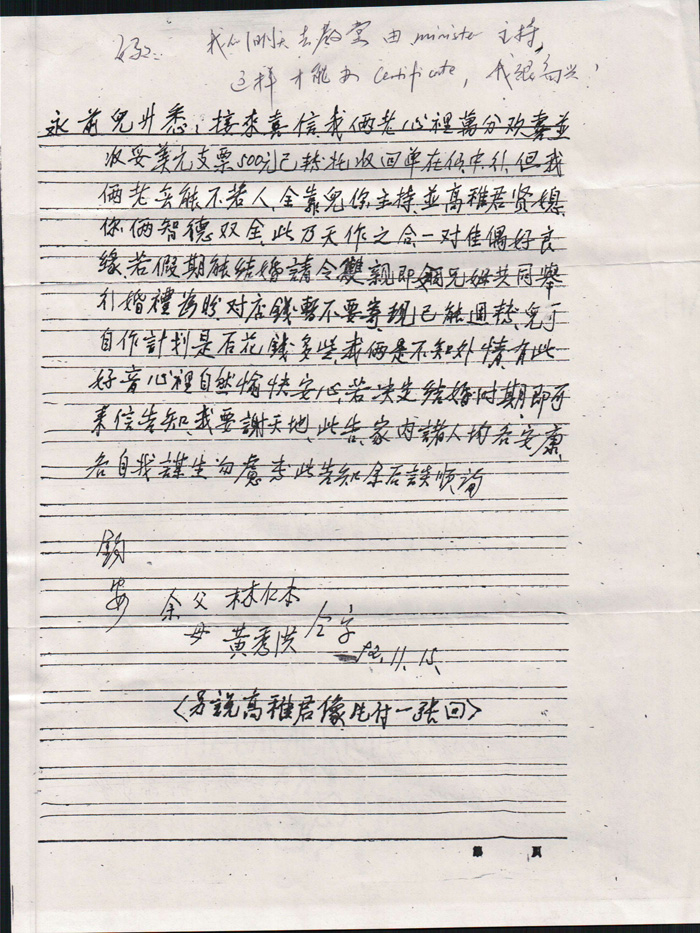 我们刚才去教堂由 minister 主持,
这样才能办 certificate, 我很高兴!
永前兒廾悉:接來真信我俩老心裡萬分欢喜並
收妥美元支票500元已轉托收回单在侯中行,但我
俩老無能不若人,全靠兒你主持,並高稚君贤媳
你俩智德双全,此乃天作之合,一对佳偶好良
緣若假期能結婚請令雙親即姻兄姆共同舉
行婚禮為盼对店錢暫不要寄現已能週轉,兒可
自作計划是否花錢多些,我俩是不知外情,有此
好音心裡自然愉快安心,若决定結婚时期即可
来信告知,我要謝天地,此告,家内諸人均吾安康
各自我謀生勿慮 此告知余后談順論
鈞
安
余父 林仁本
母 黄秀洪 仝字
92.11.15
<另說高稚君像片付一张回>
第 頁